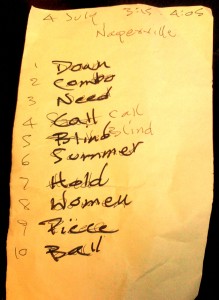 4 July 3:15 - 4:05
Naperville
1 Down
2 Combo
3 Need
4 Call Call
5 Blind Blind
6 Summer
7 Hold
8 Women
9 Piece
10 Ball